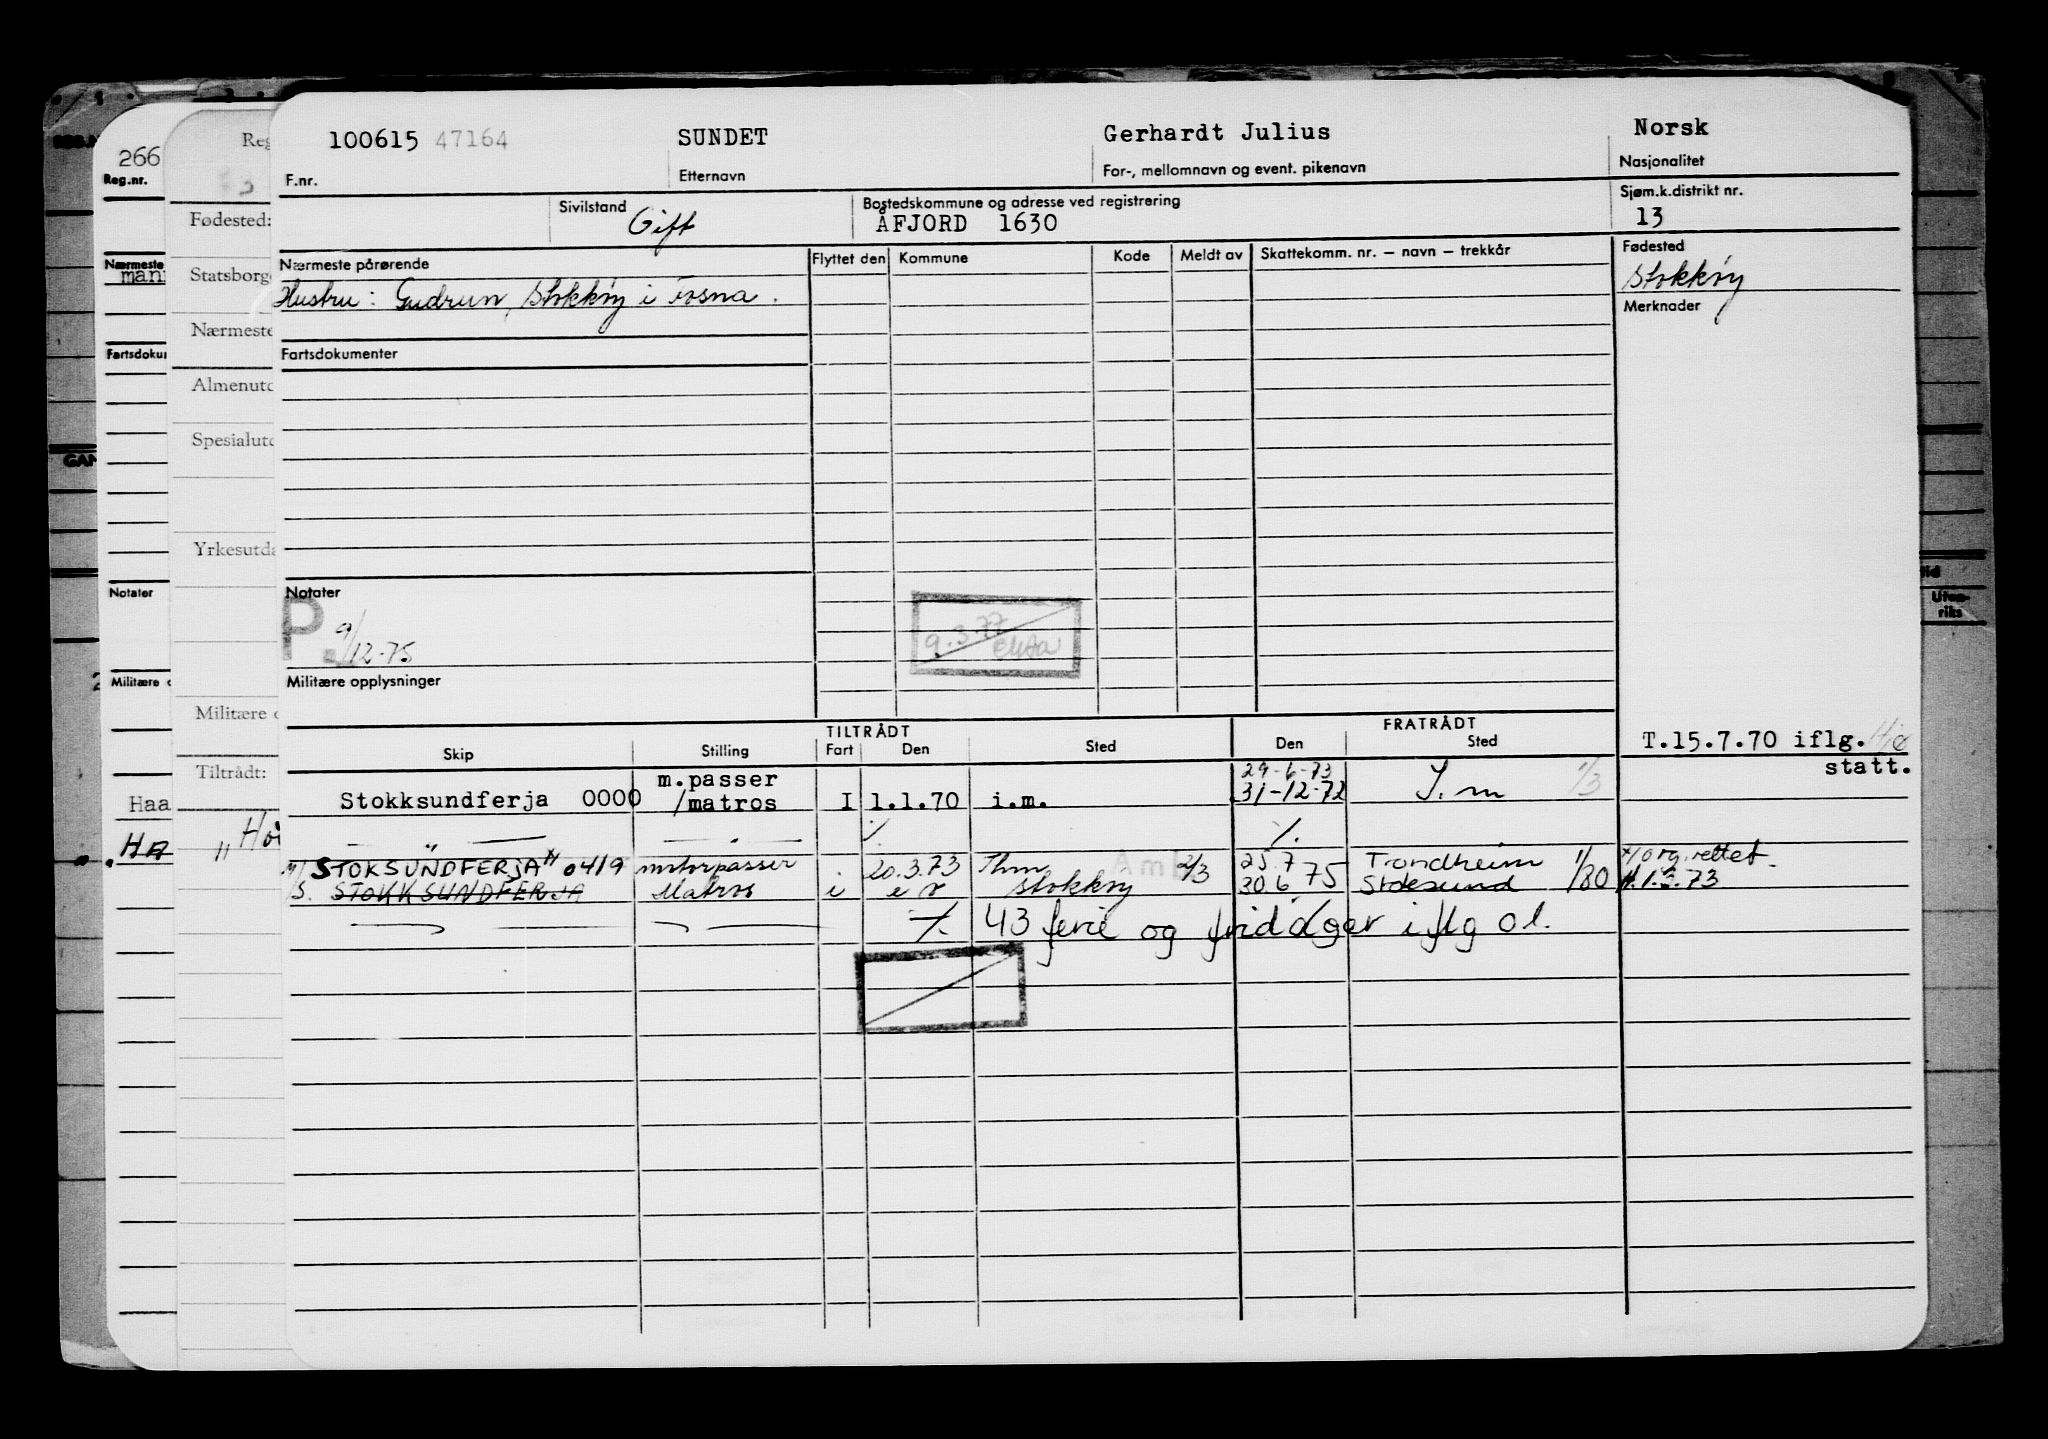 100615 47164 SUNDET Gerhardt Julius Norsk
F.nr. Etternavn For-, mellomnavn og event. pikenavn Nasjonalitet
Sivilstand Gift Bostedskommune og adresse ved registrering Sjøm.k.distrikt nr.
ÅFJORD 1630 13
Nærmeste pårørende Flyttet den Kommune Kode Meldt av Skattekomm. nr. – navn – trekkår Fødested
Hustru: Gudrun, Stokkøy i Fosna. Stokkøy
Merknader
Fartsdokumenter
Notater
P. 9/12-75 9.3.77
Militære opplysninger
TILTRÅDT FRATRÅDT
Skip Stilling Fart Den Sted Den Sted T.15.7.70 iflg.
statt.
m.passer 29-6-73
Stokksundferja 0000 /matros I 1.1.70 i.m. 31-12-72 I.m 1/3
— " — — " — ./. ./.
M/ STOKSUNDFERJA" 0419 motorpasser 20.3.73 Thm 2/3 25.7 Trondheim 1/80 x/org.rettet
S. STOKKSUNDFERJA Matros i Stokkøy 30.6 75 Stoksund 1.3.73
./. 43 ferie og fridager iflg ol.
266
Reg.nr.
Nærmeste
Fartsdoku
Notater
Militære
Haa
HA
Reg
Fødested:
Statsborge
Nærmeste
Almenutd
Spesialutd
Yrkesutda
Militære
Tiltrådt:
GAN
Uten-
riks